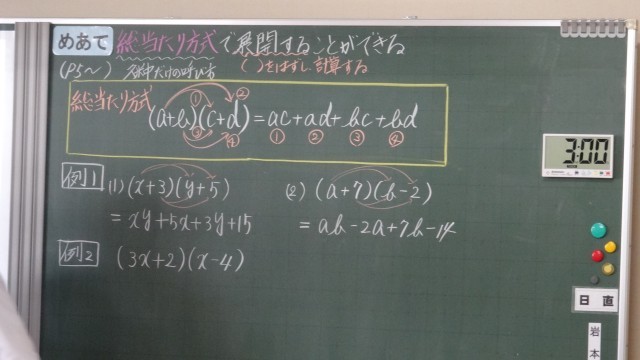 めあて 総当たり方式で展開することができる
(P5〜) 名村だけの呼び方 ( )をはずし計算する
総当たり方式 (a+b)(c+d)=ac+ad+bc+bd
① ② ③ ④ ① ② ③ ④
例1 (1) (x+3)(y+5) (2) (a+7)(b-2)
= xy+5x+3y+15 = ab-2a+7b-14
例2 (3x+2)(x-4)
3:00
日直
岩本